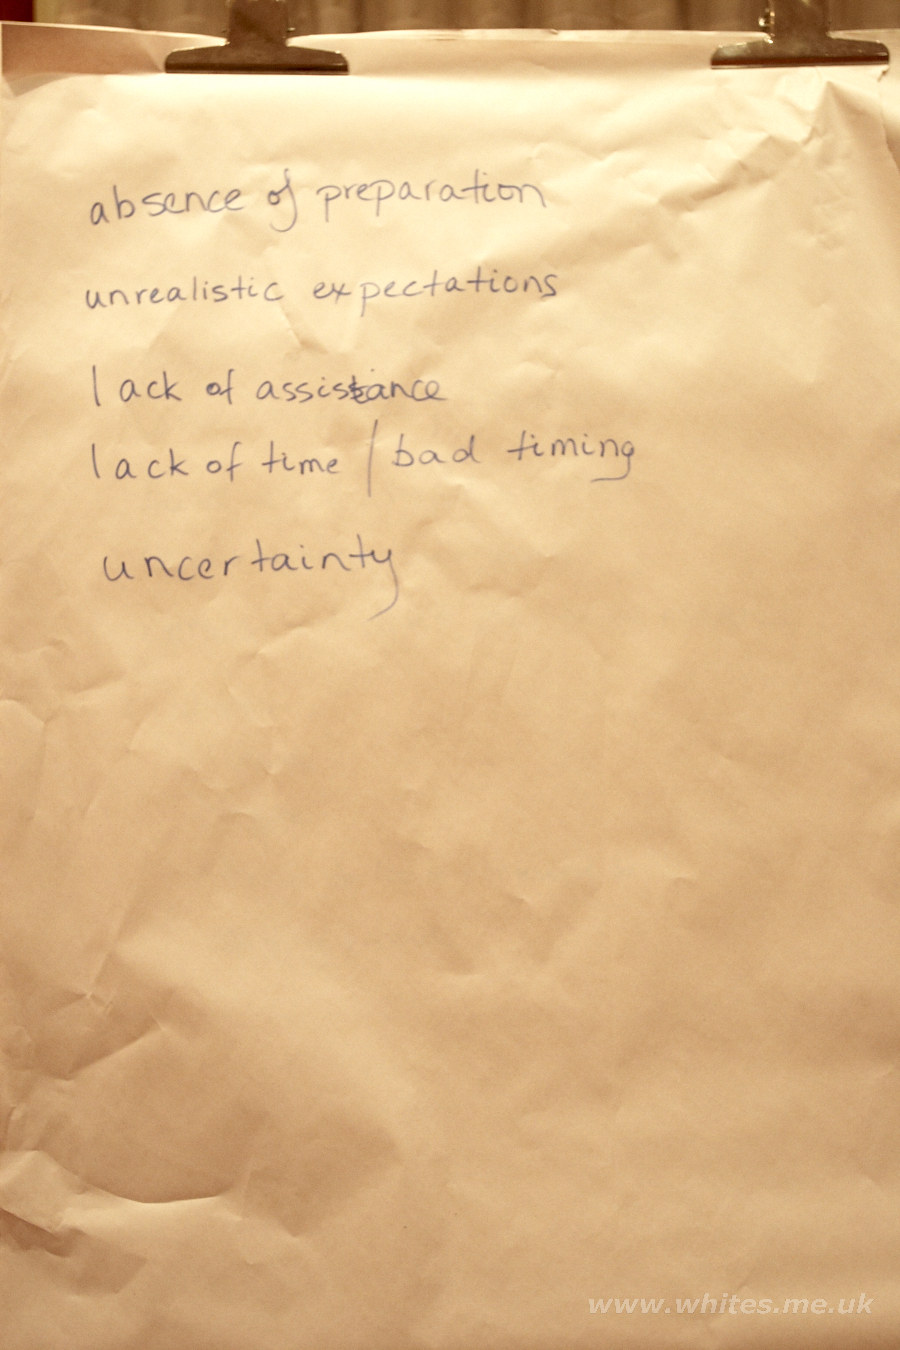 absence of preparation
unrealistic expectations
lack of assistance
lack of time / bad timing
uncertainty
www.whites.me.uk